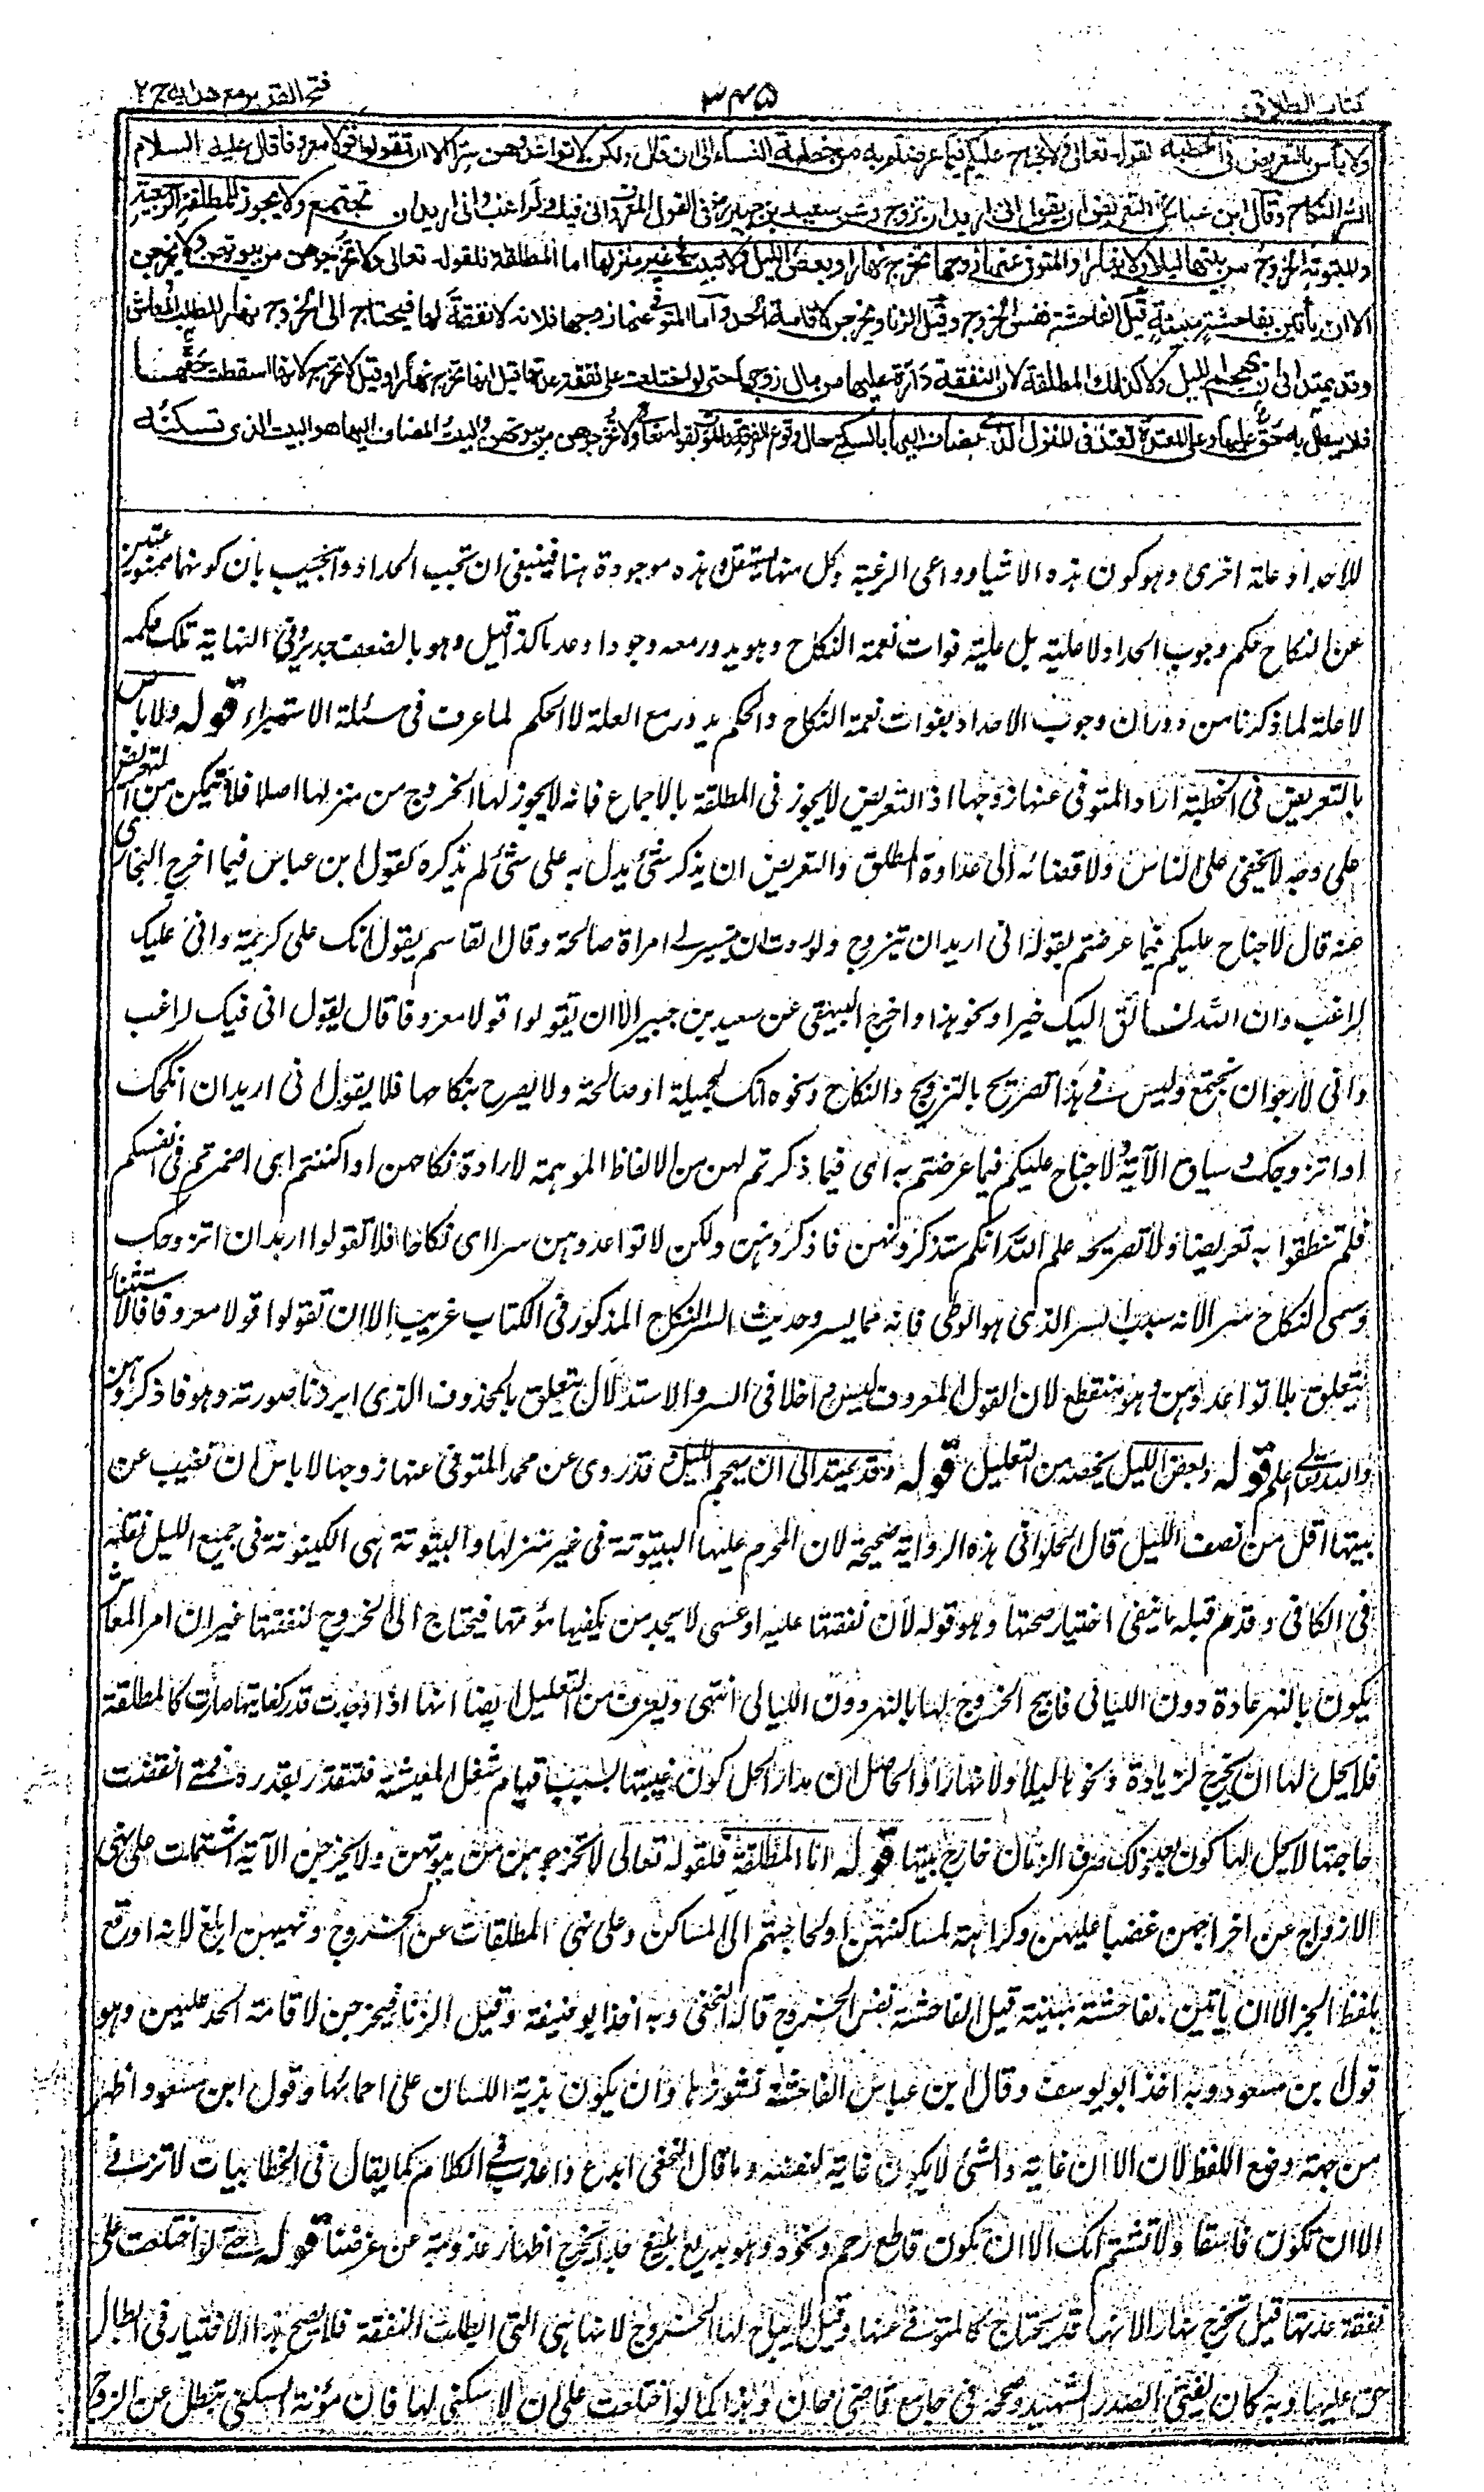 كتاب الطلاق
٣٤٥
فتح القدير مع هدايه ج ٢
ولا بأس بالتعريض فى الخطبة لقوله تعالى ولا جناح عليكم فيما عرضتم به من خطبة النساء الى ان قال ولكن لا تواعدوهن سرا الا ان تقولوا قولا معروفا قال عليه السلام
السر النكاح وقال ابن عباس التعريض ان يقول انى اريد ان تزوج وعن سعيد بن جبير رض فى القول المعروف انى فيك لراغب وانى اريد ان نجتمع ولا يجوز للمطلقة الرجعية
والمبتوتة الخروج من بيتها ليلا ولا نهارا والمتوفى عنها زوجها تخرج نهارا وبعض الليل ولا تبيت فى غير منزلها اما المطلقة فلقوله تعالى ولا تخرجوهن من بيوتهن ولا يخرجن
الا ان يأتين بفاحشة مبينة قيل الفاحشة نفس الخروج وقيل الزنا ويخرجن لاقامة الحد واما المتوفى عنها زوجها فلانه لا نفقة لها فيحتاج الى الخروج نهارا لطلب المعاش
وقد يمتد الى ان يهجم الليل ولا كذلك المطلقة لان النفقة دارة عليها من مال زوجها حتى لو اختلعت على نفقة عدتها قيل انها تخرج نهارا وقيل لا تخرج لانها اسقطت حقها
فلا يبطل به حق عليها وعلى المعتدة ان تعتد فى المنزل الذى يضاف اليها بالسكنى حال وقوع الفرقة والموت لقوله تعالى ولا تخرجوهن من بيوتهن والبيت المضاف اليها هو البيت الذى تسكنه
للاحداد علة اخرى وهو كون هذه الاشياء دواعى الرغبة وكل منها يستقل وهذه موجودة هنا فينبغى ان تجب الحداد واجيب بان كونها ممنوعتين
عن النكاح حكم وجوب الحداد ولا علية بل علية فوات نعمة النكاح وهو يدور معه وجودا وعدما كذا قيل وهو بالضعف جدير وفى النهاية تلك حكمه
لا علة لما ذكرنا من دوران وجوب الاحداد بفوات نعمة النكاح والحكم يدور مع العلة لا الحكم لما عرف فى مسئلة الاستبراء قوله ولا باس
بالتعريض فى الخطبة اراد المتوفى عنها زوجها اذ التعريض لا يجوز فى المطلقة بالاجماع فانه لا يجوز لها الخروج من منزلها اصلا فلا يتمكن من التعريض
على وجه لا يخفى على الناس ولا فضائه الى عداوة المطلق والتعريض ان يذكر شئ يدل به على شئ لم يذكره كقول ابن عباس فيما اخرج البخارى
عنه قال لا جناح عليكم فيما عرضتم يقول انى اريد ان تزوج ولوددت ان تيسر لى امراة صالحة وقال القاسم يقول انك على كريمة وانى عليك
لراغب وان الله لسائق اليك خيرا او نحو هذا واخرج البيهقى عن سعيد بن جبير الا ان تقولوا قولا معروفا قال يقول انى فيك لراغب
وانى لارجو ان نجتمع وليس فى هذا تصريح بالتزويج والنكاح ونحوه انك لجميلة او صالحة ولا يصرح بنكاحها فلا يقول انى اريد ان انكحك
او اتزوجك وسياق الآية ولا جناح عليكم فيما عرضتم به اى فيما ذكرتم لهن من الالفاظ الموهمة لارادة نكاحهن او اكننتم اى اضمرتم فى انفسكم
فلم تنطقوا به تعريضا ولا تصريحا علم الله انكم ستذكرونهن فاذكروهن ولكن لا تواعدوهن سرا اى نكاحا فلا تقولوا اريد ان اتزوجك
وسمى النكاح سرا لانه سبب السر الذى هو الوطى فانه مما يسر وحديث السر النكاح المذكور فى الكتاب غريب الا ان تقولوا قولا معروفا فالاستثناء
يتعلق بلا تواعدوهن وهو منقطع لان القول المعروف ليس داخلا فى السر والاستدلال يتعلق بالمحذوف الذى ابرزنا صورته وهو فاذكروهن
والله تعالى اعلم قوله وبعض الليل يخصه من التعليل قوله وقد يمتد الى ان يهجم الليل قد روى عن محمد المتوفى عنها زوجها لا باس ان تغيب عن
بيتها اقل من نصف الليل قال الحلوانى هذه الرواية صحيحة لان المحرم عليها البيتوتة فى غير منزلها والبيتوتة هى الكينونة فى جميع الليل نقله
فى الكافى وقدم قبله ما ينفى اختيار صحتها وهو قوله لان نفقتها عليه او عسى لا يجد من يكفيها مؤنتها فيحتاج الى الخروج لنفقتها غير ان امر المعاش
يكون بالنهر عادة دون الليالى فابيح الخروج لها بالنهر دون الليالى انتهى ويعرف من التعليل ايضا انها اذا وجدت قدر كفايتها صارت كالمطلقة
فلا يحل لها ان تخرج لزيادة ونحوها ليلا ولا نهارا والحاصل ان مدار الحل كون غيبتها بسبب قيام شغل المعيشة فتتقدر بقدره فمتى انقضت
حاجتها لا يحل لها كون بعد ذلك صرف الزمان خارج بيتها قوله اما المطلقة فلقوله تعالى لا تخرجوهن من بيوتهن ولا يخرجن الآية اشتملت على نهى
الازواج عن اخراجهن غضبا عليهن وكراهة لمساكنتهن او لحاجتهم الى المساكن وعلى نهى المطلقات عن الخروج ونهيهن ابلغ لانه اوقع
بلفظ الخبر الا ان ياتين بفاحشة مبينة قيل الفاحشة نفس الخروج قاله النخعى وبه اخذ ابو حنيفة وقيل الزنا فيخرجن لاقامة الحد عليهن وهو
قول ابن مسعود وبه اخذ ابو يوسف وقال ابن عباس الفاحشة نشوزها وان يكون بذية اللسان على احمائها وقول ابن مسعود اظهر
من جهة وضع اللفظ لان الا ان غاية والشئ لا يكون غاية لنفسه وما قال النخعى ابدع واعذب فى الكلام كما يقال فى الخطابيات لا تزن
الا ان تكون فاسقا ولا تشتم امك الا ان تكون قاطع رحم ونحوه وهو بديع بليغ جدا يخرج اظهار عذوبته عن غرضنا قوله حتى لو اختلعت على
نفقة عدتها قيل تخرج نهارا لانها قد يحتاج كالمتوفى عنها وقيل لا يباح لها الخروج لانها هى التى ابطلت النفقة فلا يصح هذا الاختيار فى ابطال
حق عليها وبه كان يفتى الصدر الشهيد وصححه فى جامع قاضى خان وهذا كما لو اختلعت على ان لا سكنى لها فان مؤنة السكنى تبطل عن الزوج